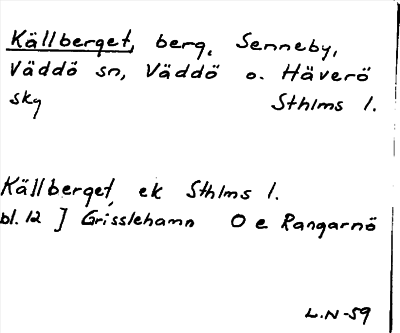 Källberget, berg, Senneby,
Väddö sn, Väddö o. Häverö
sky Sthlms l.
Källberget, ek Sthlms l.
bl. 12 ] Grisslehamn O e Rangarnö
L.N-59